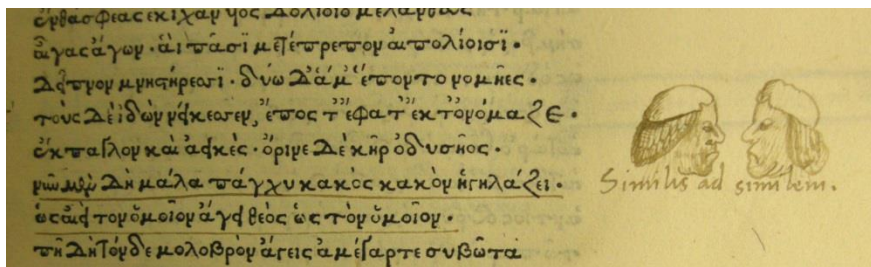 ἔνθα σφέας ἐκίχαν' υἱὸς Δολίοιο μελανθεὺς
αἶγας ἄγων· αἳ πᾶσι μετέπρεπον αἰπολίοισϊ·
Δεῖπνον μνηστήρεσσι· δύω Δ' ἅμ' ἕποντο νομῆες·
τοὺς Δὲ ἰδὼν νείκεσεν, ἔπος τ' ἔφατ' ἔκ τ' ὀνόμαζε·
ἔκπαγλον καὶ ἀεικές· ὄρινε Δὲ κῆρ ὀδυσῆος·
νῦν μὲν Δὴ μάλα πάγχυ κακὸς κακὸν ἡγηλάζει·
ὡς αἰεὶ τὸν ὅμοῖον ἄγει θεὸς ὡς τὸν ὅμοῖον·
πῆ Δὴ τόνδε μολοβρὸν ἄγεις ἀμέγαρτε συβῶτα
Similis ad similem.